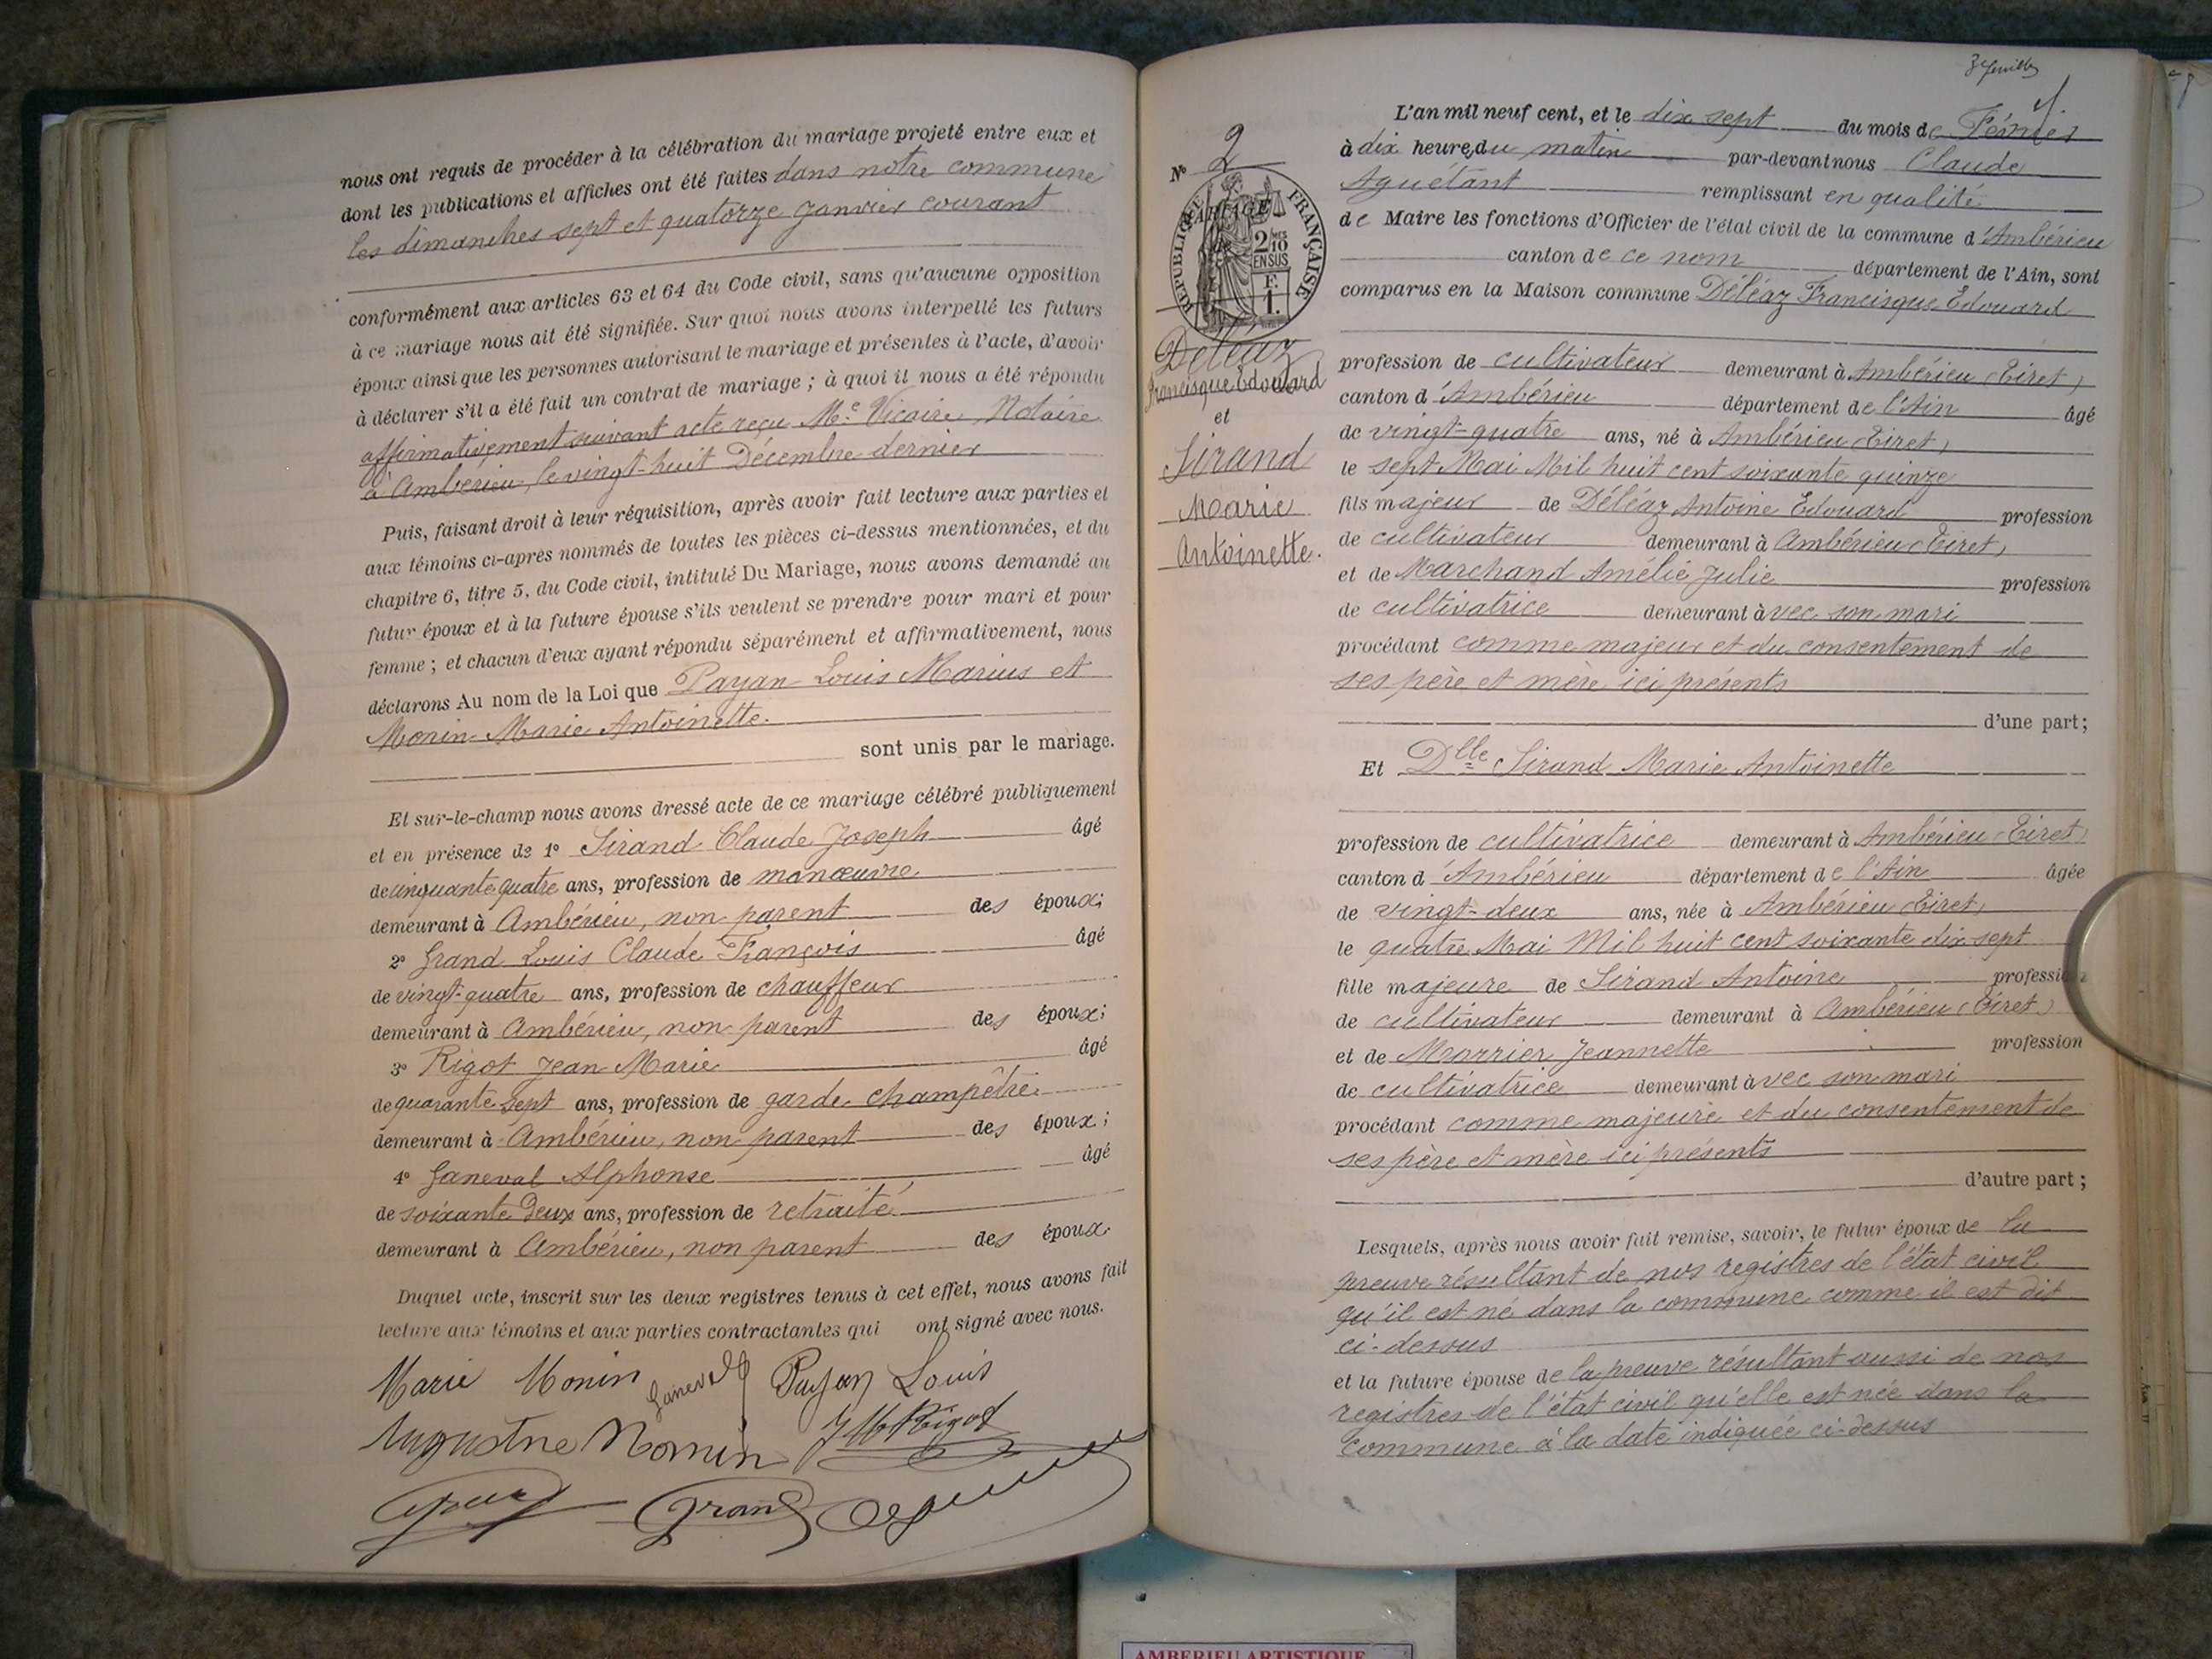 nous ont requis de procéder à la célébration du mariage projeté entre eux et
dont les publications et affiches ont été faites dans notre commune
les dimanches sept et quatorze Janvier courant
conformément aux articles 63 et 64 du Code civil, sans qu'aucune opposition
à ce mariage nous ait été signifiée. Sur quoi nous avons interpellé les futurs
époux ainsi que les personnes autorisant le mariage et présentes à l'acte, d'avoir
à déclarer s'il a été fait un contrat de mariage ; à quoi il nous a été répondu
affirmativement suivant acte reçu Me Vicaire, Notaire
à Ambérieu, le vingt-huit Décembre dernier
Puis, faisant droit à leur réquisition, après avoir fait lecture aux parties et
aux témoins ci-après nommés de toutes les pièces ci-dessus mentionnées, et du
chapitre 6, titre 5, du Code civil, intitulé Du Mariage, nous avons demandé au
futur époux et à la future épouse s'ils veulent se prendre pour mari et pour
femme ; et chacun d'eux ayant répondu séparément et affirmativement, nous
déclarons Au nom de la Loi que Payan Louis Marius et
Monin Marie Antoinette
sont unis par le mariage.
Et sur-le-champ nous avons dressé acte de ce mariage célébré publiquement
et en présence de 1° Sirand Claude Joseph âgé
de cinquante quatre ans, profession de manœuvre
demeurant à Ambérieu, non parent des époux;
2° Grand Louis Claude François âgé
de vingt-quatre ans, profession de chauffeur
demeurant à Ambérieu, non parent des époux;
3° Rigot Jean Marie âgé
de quarante sept ans, profession de garde champêtre
demeurant à Ambérieu, non parent des époux;
4° Ganeval Alphonse âgé
de soixante deux ans, profession de retraité
demeurant à Ambérieu, non parent des époux
Duquel acte, inscrit sur les deux registres tenus à cet effet, nous avons fait
lecture aux témoins et aux parties contractantes qui ont signé avec nous.
Marie Monin Ganeval Payan Louis
Augustine Monin JM Rigot
Grand
3e feuille
N° 2
RÉPUBLIQUE FRANÇAISE
MARIAGE
2/10 EN SUS
F. 1.
Déléaz
Francisque Edouard
et
Sirand
Marie
Antoinette.
L'an mil neuf cent, et le dix sept du mois de Février
à dix heures du matin par-devant nous Claude
Aguétant remplissant en qualité
de Maire les fonctions d'Officier de l'état civil de la commune d'Ambérieu
canton de ce nom département de l'Ain, sont
comparus en la Maison commune Déléaz Francisque Edouard
profession de cultivateur demeurant à Ambérieu (Tiret)
canton d'Ambérieu département de l'Ain âgé
de vingt-quatre ans, né à Ambérieu (Tiret)
le sept Mai Mil huit cent soixante quinze
fils majeur de Déléaz Antoine Edouard profession
de cultivateur demeurant à Ambérieu (Tiret)
et de Marchand Amélie Julie profession
de cultivatrice demeurant avec son mari
procédant comme majeur et du consentement de
ses père et mère ici présents
d'une part;
Et Dlle Sirand Marie Antoinette
profession de cultivatrice demeurant à Ambérieu (Tiret)
canton d'Ambérieu département de l'Ain âgée
de vingt-deux ans, née à Ambérieu (Tiret)
le quatre Mai Mil huit cent soixante dix sept
fille majeure de Sirand Antoine profession
de cultivateur demeurant à Ambérieu (Tiret)
et de Morrier Jeannette profession
de cultivatrice demeurant avec son mari
procédant comme majeure et du consentement de
ses père et mère ici présents
d'autre part;
Lesquels, après nous avoir fait remise, savoir, le futur époux de la
preuve résultant de nos registres de l'état civil
qu'il est né dans la commune comme il est dit
ci-dessus
et la future épouse de la preuve résultant aussi de nos
registres de l'état civil qu'elle est née dans la
commune à la date indiquée ci-dessus
AMBERIEU ARTISTIQUE